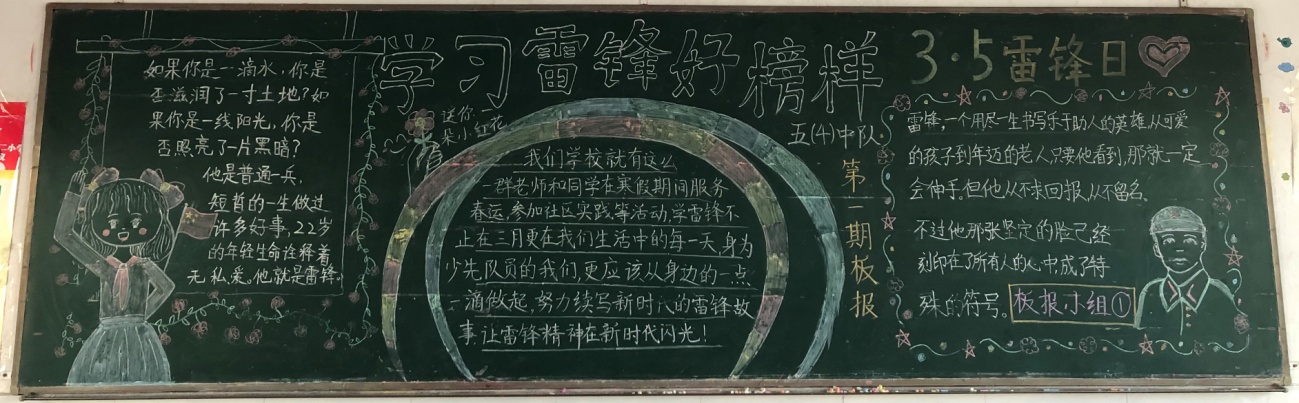 学习雷锋好榜样
如果你是一滴水，你是
否滋润了一寸土地？如
果你是一线阳光，你是
否照亮了一片黑暗？
他是普通一兵，
短暂的一生做过
许多好事，22岁
的年轻生命诠释着
无私爱。他就是雷锋。
送你一
朵小红花
五(4)中队
我们学校就有这么
一群老师和同学在寒假期间服务
春运，参加社区实践等活动，学雷锋不
止在三月更在我们生活中的每一天，身为
少先队员的我们，更应该从身边的一点
一滴做起，努力续写新时代的雷锋故
事 让雷锋精神在新时代闪光！
第一期板报
3·5雷锋日
雷锋，一个用尽一生书写乐于助人的英雄，从可爱
的孩子到年迈的老人，只要他看到，那就一定
会伸手。但他从不求回报，从不留名。
不过他那张坚定的脸已经
刻印在了所有人的心中，成了特
殊的符号。
板报小组①